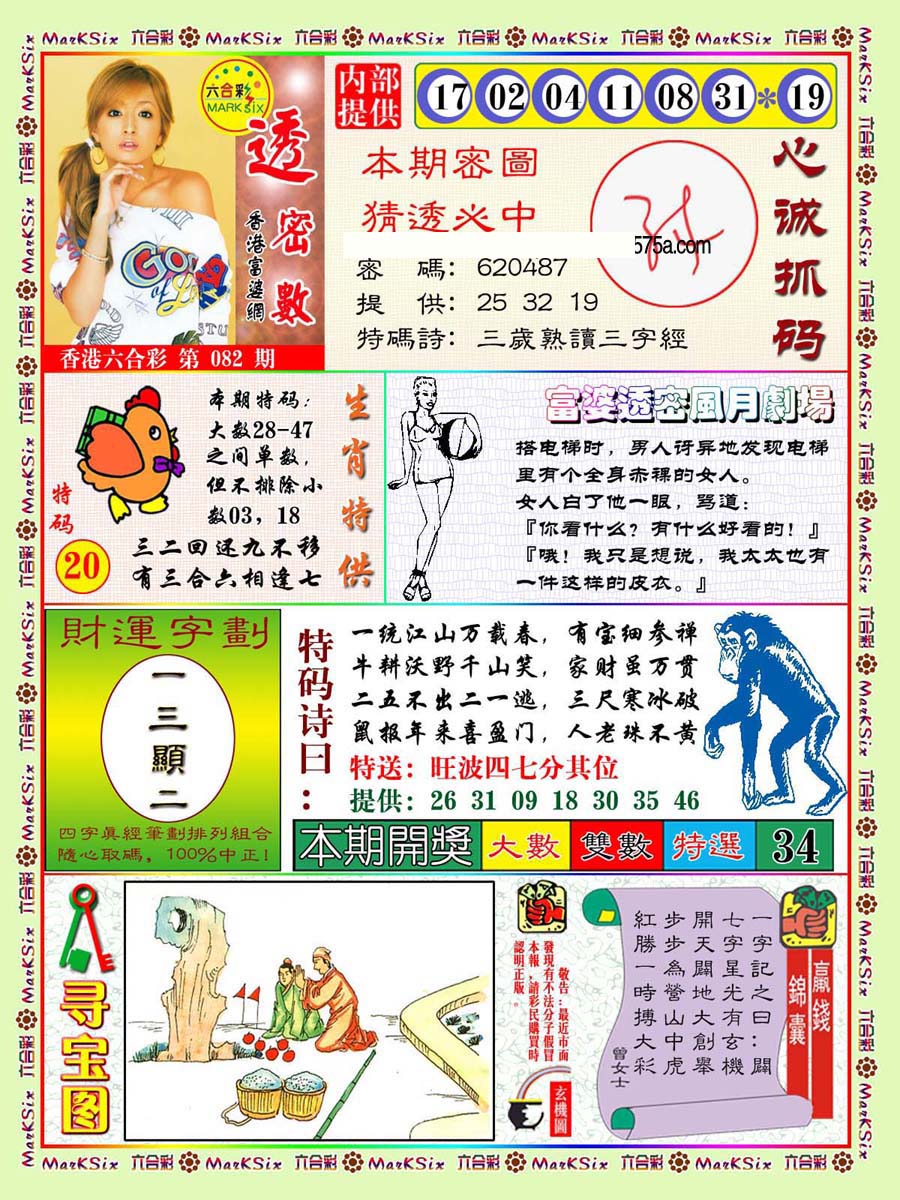 MarKSix 六合彩 MarKSix 六合彩 MarKSix 六合彩 MarKSix 六合彩 MarKSix 六合彩
六合彩
MARK SIX
透密數
香港富婆網
香港六合彩 第 082 期
内部
提供
17 02 04 11 08 31 * 19
本期密圖
猜透必中
575a.com
密 碼: 620487
提 供: 25 32 19
特碼詩: 三歲熟讀三字經
心誠抓码
特码
20
本期特码:
大数28-47
之间单数,
但不排除小
数03,18
三二回还九不移
有三合六相逢七
生肖特供
富婆透密風月劇場
搭电梯时,男人讶异地发现电梯
里有个全身赤裸的女人。
女人白了他一眼,骂道:
『你看什么?有什么好看的!』
『哦!我只是想说,我太太也有
一件这样的皮衣。』
財運字劃
一三顯二
四字眞經筆劃排列組合
隨心取碼,100%中正!
特码诗曰:
一统江山万载春,有宝细参禅
牛耕沃野千山笑,家财虽万贯
二五不出二一逃,三尺寒冰破
鼠报年来喜盈门,人老珠不黄
特送:旺波四七分其位
提供:26 31 09 18 30 35 46
本期開獎 大數 雙數 特選 34
寻宝图
敬告:最近市面
發現有不法分子假冒
本報,請彩民購買時
認明正版。
玄機圖
贏錢
錦囊
一字記之曰:闢
七字星光有玄機
開天闢地大創舉
步步為營山中虎
紅勝一時搏大彩
曾女士
MarKSix 六合彩 MarKSix 六合彩 MarKSix 六合彩 MarKSix 六合彩 MarKSix 六合彩